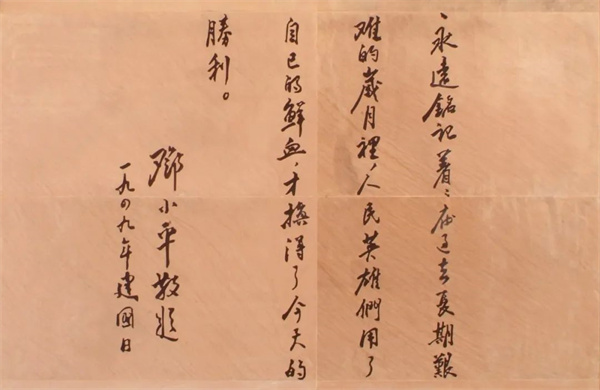 永遠銘記著：在过去長期艱
难的歲月裡，人民英雄們用了
自已的鮮血，才換得了今天的
勝利。
鄧小平敬题
一九四九年建國日